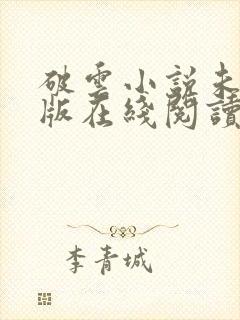 破雲小説未
版在綫閱讀
李青城